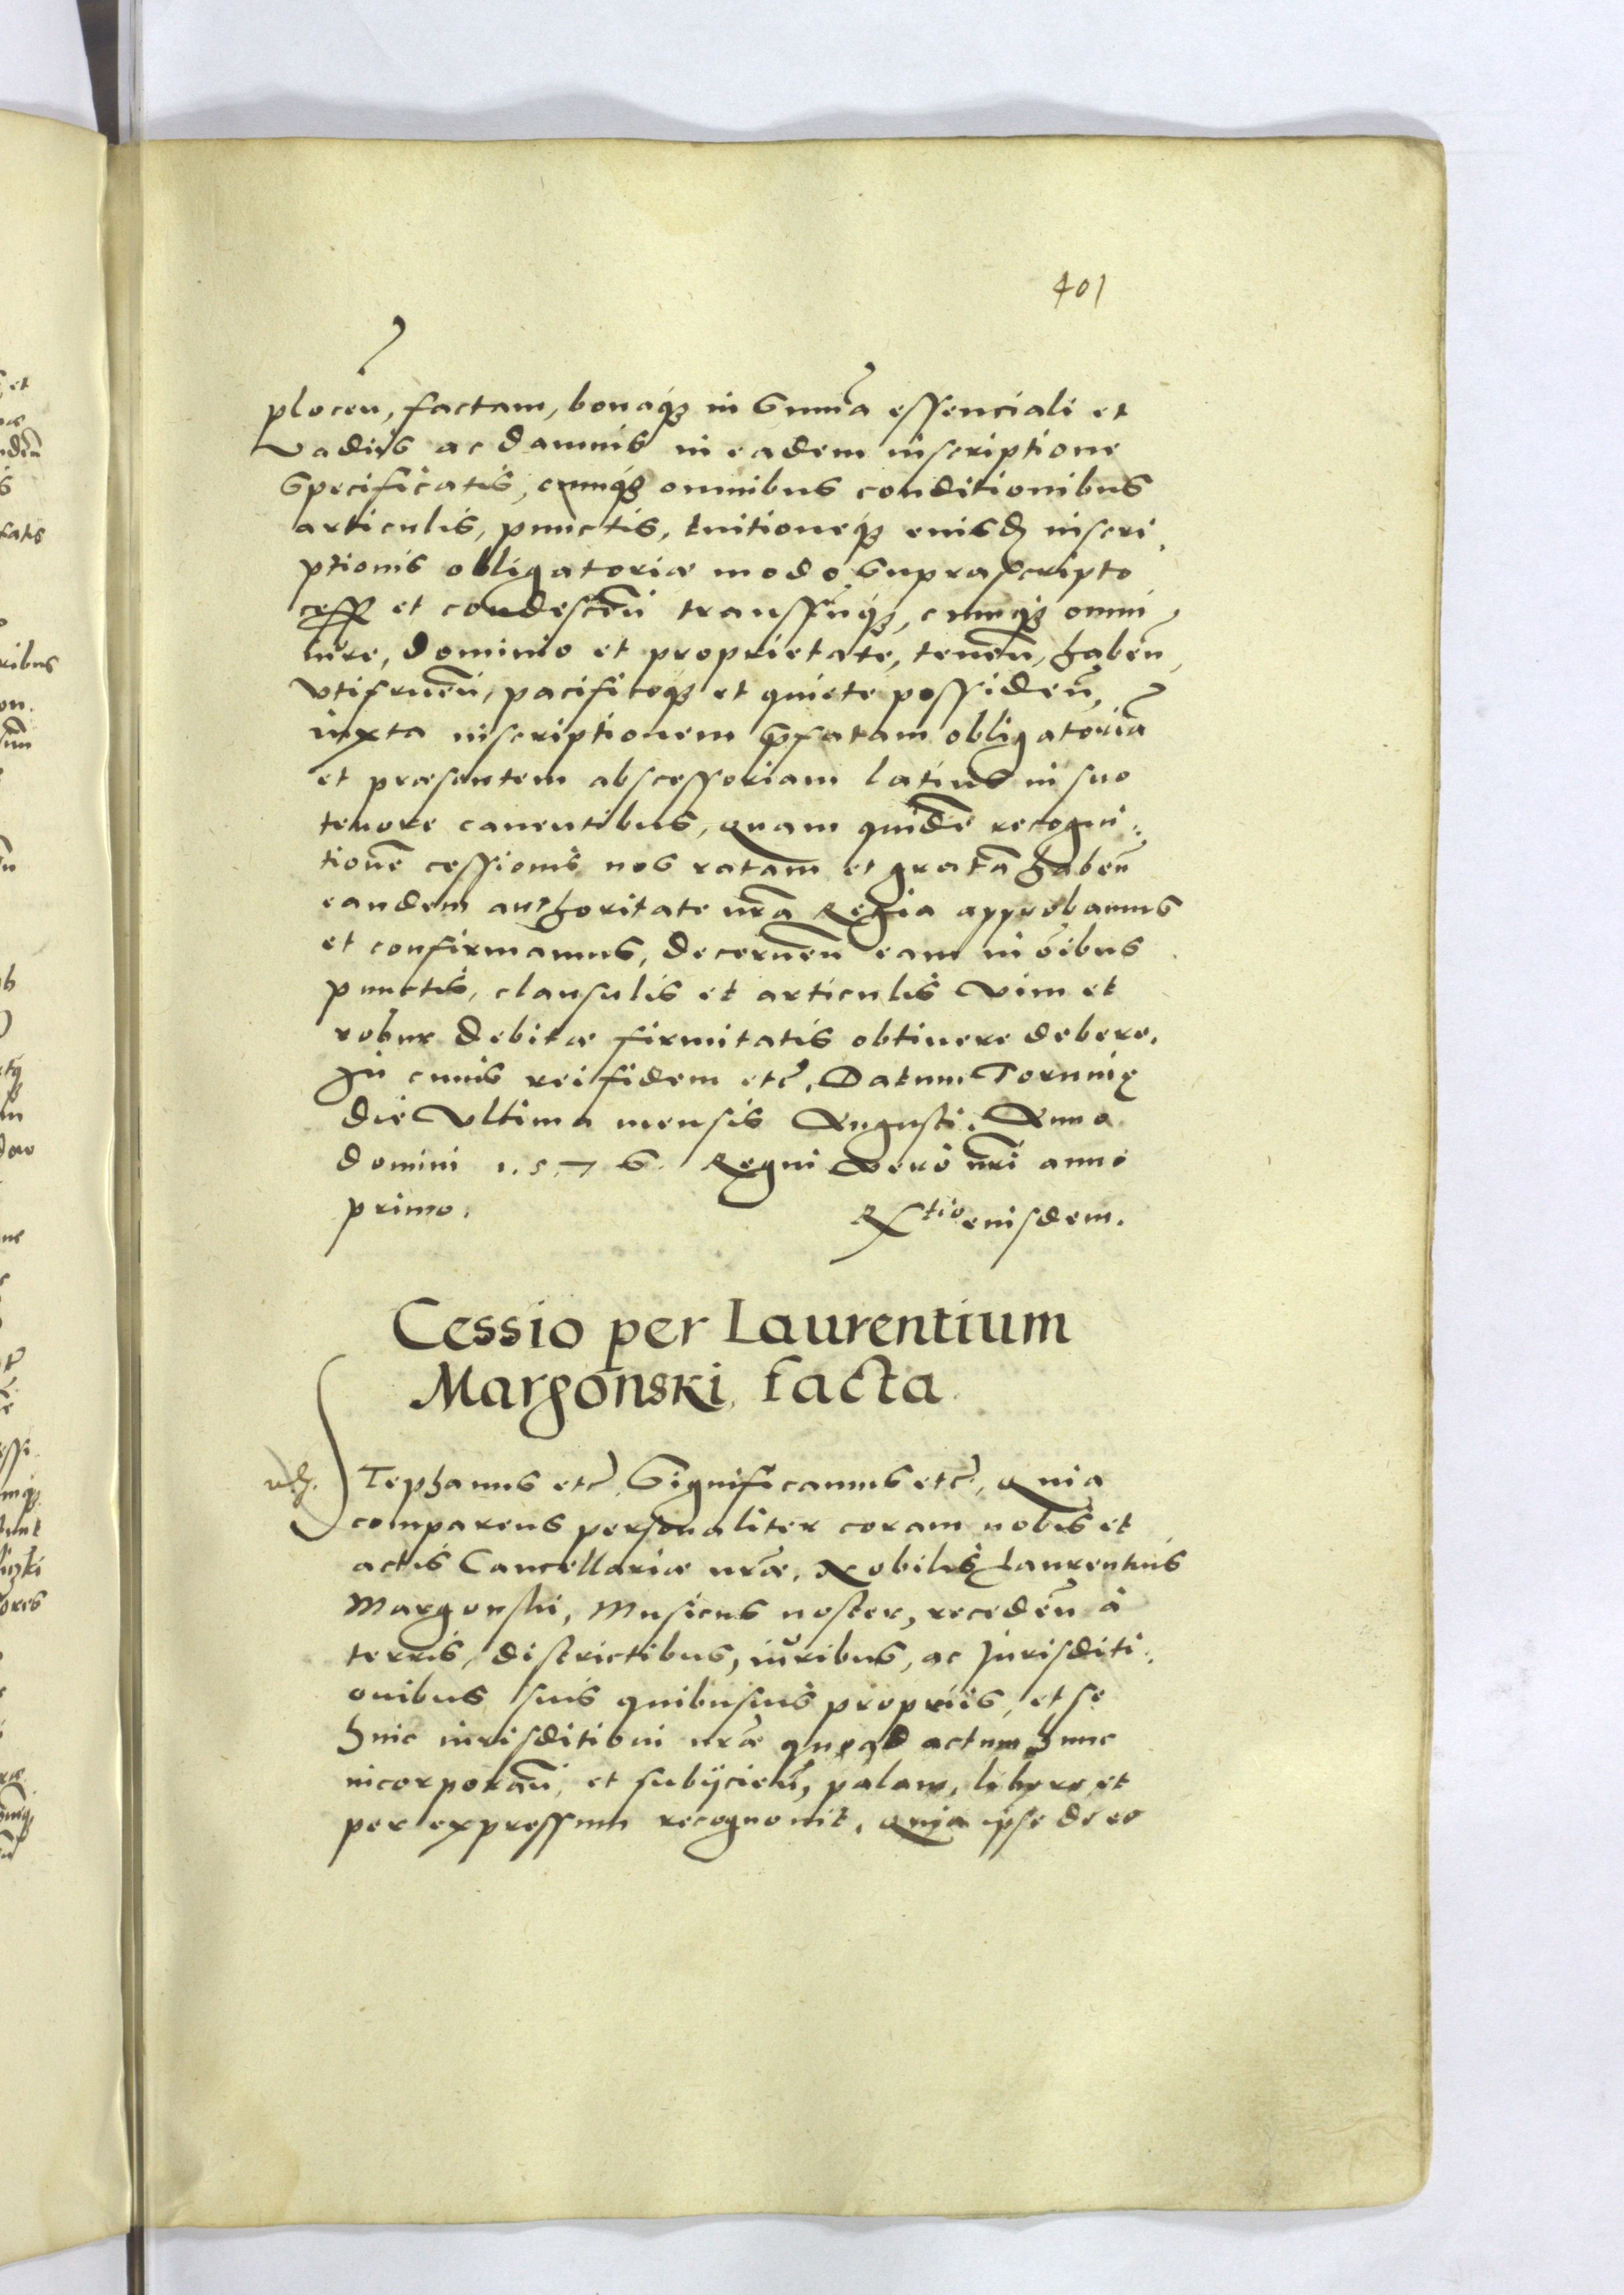 401
plocen, factam, bonaq₃ in Summa essenciali et
vadiis ac damnis in eadem inscriptione
specificatis, cumq₃ omnibus conditionibus
articulis, punctis, tuitioneq₃ eiusd inscri
ptionis obligatoriæ modo suprascripto
cess et condescen̄ transfuq₃, cumq₃ omni
iure, dominio et proprietate, tenen̄, haben̄,
vtifruen̄, pacificeq₃ et quiete possiden̄,
iuxta inscriptionem p̄fatam obligatoriā
et præsentem abscessoriam latius in suo
tenore canentibus, Quam quidē recogni:
tionē cessionis nos ratam et gratā haben̄
eandem authoritate nr̄a Regia approbamus
et confirmamus, decernen̄ eam in oībus
punctis, clausulis et articulis vim et
robur debitæ firmitatis obtinere debere.
In cuius rei fidem etc̄. Datum Torunię
die Vltima mensis Augusti. Anno
domini 1.5.7 6. Regni vero nr̄i anno
primo.
R^tio eiusdem.
Cessio per Laurentium
Margonski, facta
STephanus etc̄. Significamus etc̄. Quia
comparens personaliter coram nobis et
actis Cancellariæ nr̄æ, Nobilis Laurentius
Margonski, Musicus noster, receden̄ à
terris, districtibus, iuribus, ac Jurisditi:
onibus suis quibusuis propriis, et se
huic iurisditioni nr̄æ quoad actum hunc
incorporan̄, et subijcien̄, palam, libere et
per expressum recognouit, Quia ipse de eo